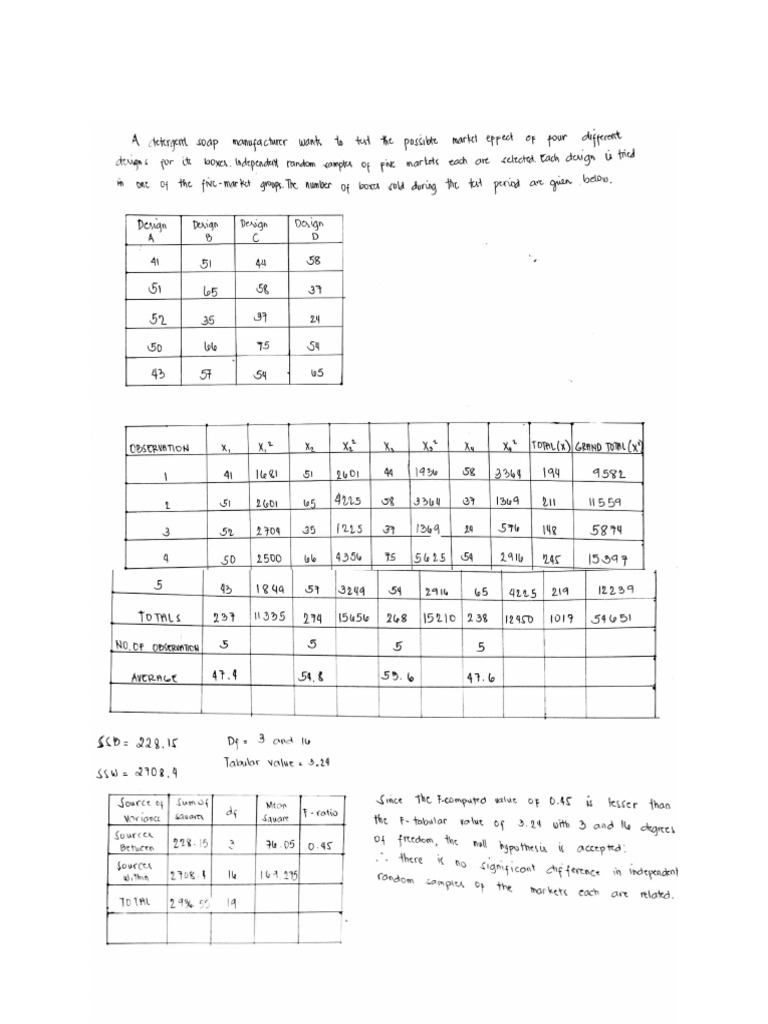 A detergent soap manufacturer wants to test the possible market effect of four different
designs for its boxes. Independent random samples of five markets each are selected. Each design is tried
in one of the five-market groups. The number of boxes sold during the test period are given below.
Design A Design B Design C Design D
41 51 44 58
51 65 58 37
52 35 37 24
50 66 75 54
43 57 54 65
OBSERVATION X₁ X₁² X₂ X₂² X₃ X₃² X₄ X₄² TOTAL(X) GRAND TOTAL(X²)
1 41 1681 51 2601 44 1936 58 3364 194 9582
2 51 2601 65 4225 58 3364 37 1369 211 11559
3 52 2704 35 1225 37 1369 24 576 148 5874
4 50 2500 66 4356 75 5625 54 2916 245 15397
5 43 1849 57 3249 54 2916 65 4225 219 12239
TOTALS 237 11335 274 15656 268 15210 238 12450 1017 54651
NO. OF OBSERVATION 5 5 5 5
AVERAGE 47.4 54.8 53.6 47.6
SSB = 228.15 Df = 3 and 16
SSW = 2708.4 Tabular value = 3.24
Source of Variance Sum of Squares df Mean Square F-ratio
Sources Between 228.15 3 76.05 0.45
Sources Within 2708.4 16 169.275
TOTAL 2936.55 19
Since the F-computed value of 0.45 is lesser than
the F-tabular value of 3.24 with 3 and 16 degrees
of freedom, the null hypothesis is accepted:
∴ there is no significant difference in independent
random samples of the markets each are related.